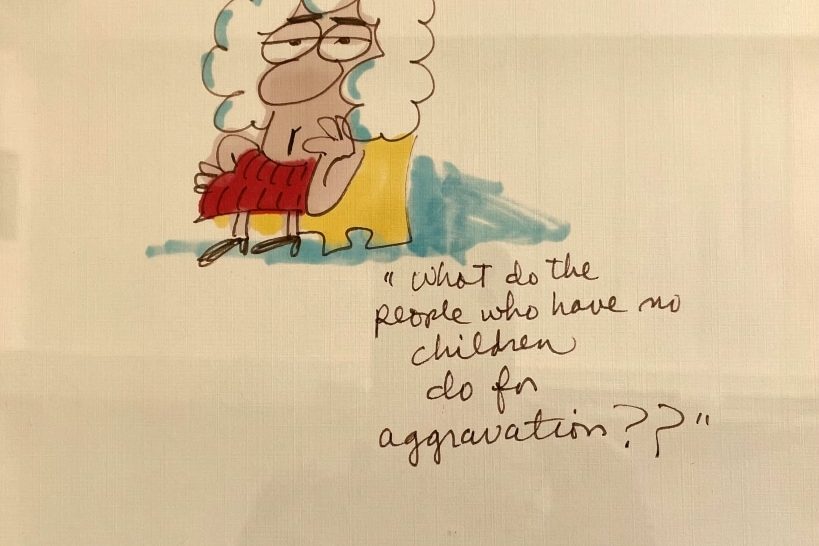 " What do the
people who have no
children
do for
aggravation??"